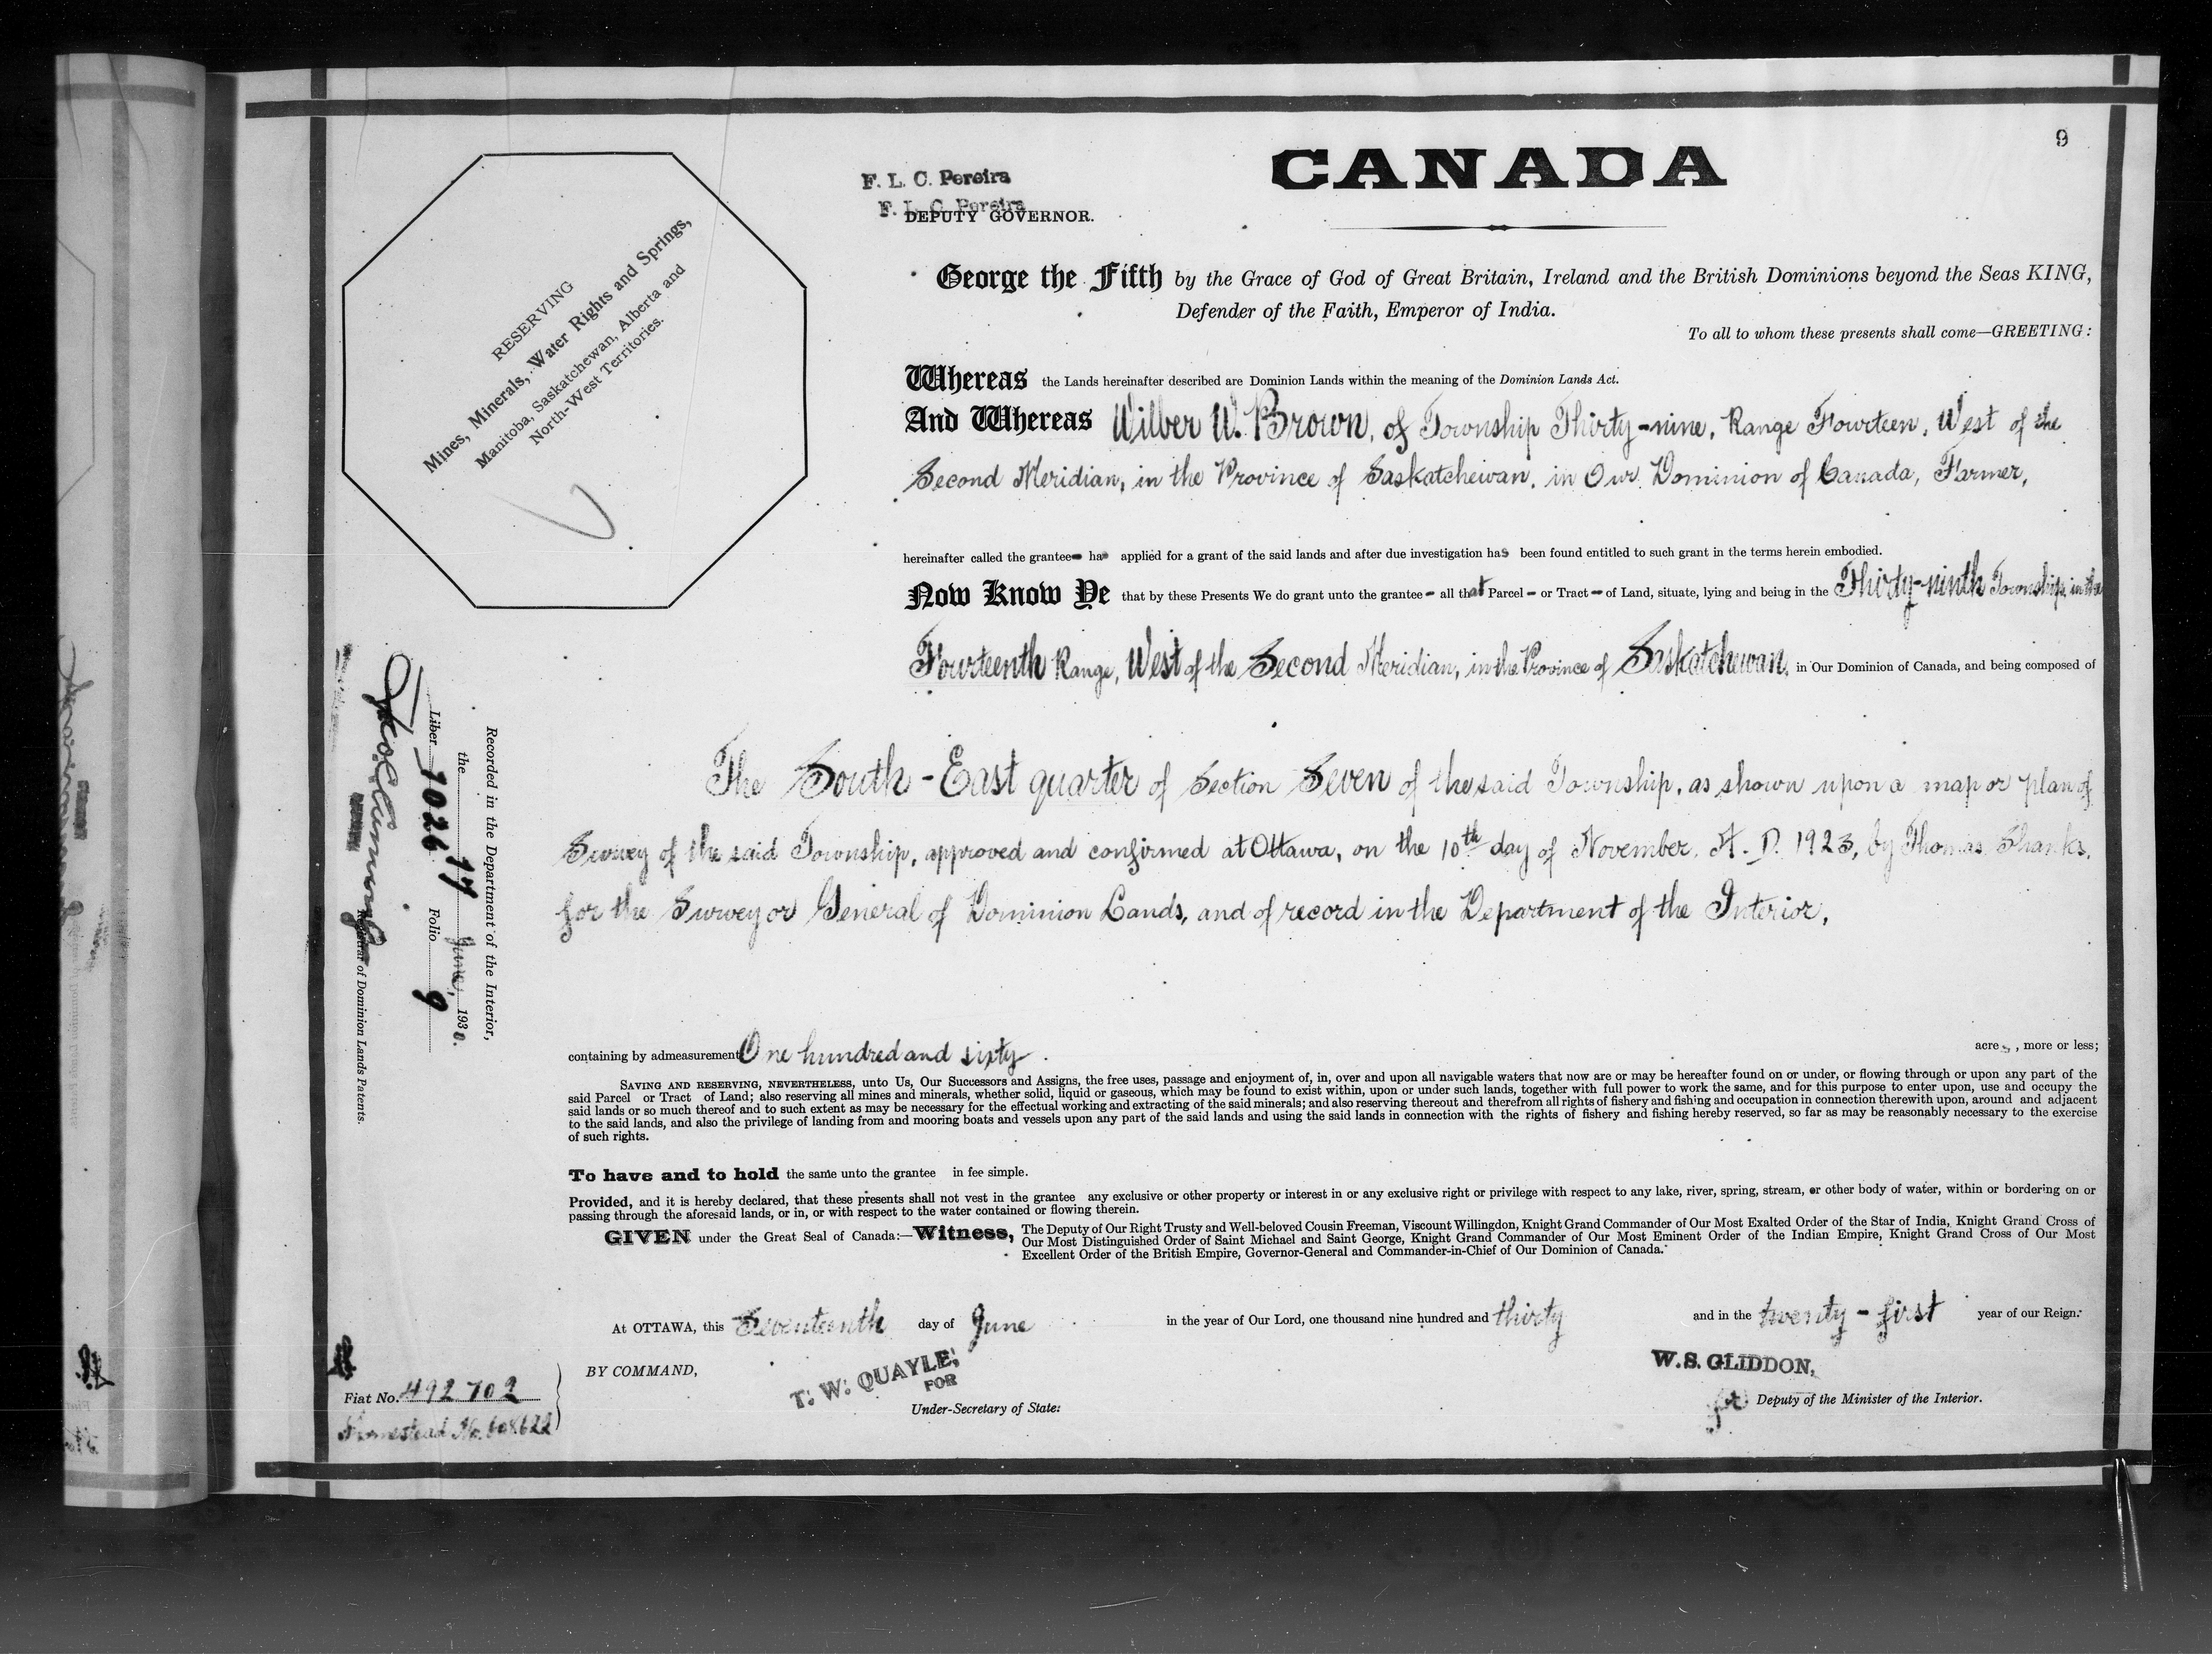 9
CANADA
F. L. C. Pereira
F. L. C. Pereira
DEPUTY GOVERNOR.
RESERVING
Mines, Minerals, Water Rights and Springs,
Manitoba, Saskatchewan, Alberta and
North-West Territories.
George the Fifth by the Grace of God of Great Britain, Ireland and the British Dominions beyond the Seas KING,
Defender of the Faith, Emperor of India.
To all to whom these presents shall come—GREETING:
Whereas the Lands hereinafter described are Dominion Lands within the meaning of the Dominion Lands Act.
And Whereas Wilber W. Brown, of Township Thirty-nine, Range Fourteen, West of the
Second Meridian, in the Province of Saskatchewan, in Our Dominion of Canada, Farmer,
hereinafter called the grantee has applied for a grant of the said lands and after due investigation has been found entitled to such grant in the terms herein embodied.
Now Know Ye that by these Presents We do grant unto the grantee - all that Parcel - or Tract - of Land, situate, lying and being in the Thirty-ninth Township, in the
Fourteenth Range, West of the Second Meridian, in the Province of Saskatchewan, in Our Dominion of Canada, and being composed of
The South-East quarter of Section Seven of the said Township, as shown upon a map or plan of
Survey of the said Township, approved and confirmed at Ottawa, on the 10th day of November, A. D. 1923, by Thomas Shanks,
for the Surveyor General of Dominion Lands, and of record in the Department of the Interior,
containing by admeasurement One hundred and sixty acres, more or less;
SAVING AND RESERVING, NEVERTHELESS, unto Us, Our Successors and Assigns, the free uses, passage and enjoyment of, in, over and upon all navigable waters that now are or may be hereafter found on or under, or flowing through or upon any part of the
said Parcel or Tract of Land; also reserving all mines and minerals, whether solid, liquid or gaseous, which may be found to exist within, upon or under such lands, together with full power to work the same, and for this purpose to enter upon, use and occupy the
said lands or so much thereof and to such extent as may be necessary for the effectual working and extracting of the said minerals; and also reserving thereout and therefrom all rights of fishery and fishing and occupation in connection therewith upon, around and adjacent
to the said lands, and also the privilege of landing from and mooring boats and vessels upon any part of the said lands and using the said lands in connection with the rights of fishery and fishing hereby reserved, so far as may be reasonably necessary to the exercise
of such rights.
To have and to hold the same unto the grantee in fee simple.
Provided, and it is hereby declared, that these presents shall not vest in the grantee any exclusive or other property or interest in or any exclusive right or privilege with respect to any lake, river, spring, stream, or other body of water, within or bordering on or
passing through the aforesaid lands, or in, or with respect to the water contained or flowing therein.
GIVEN under the Great Seal of Canada:—Witness, The Deputy of Our Right Trusty and Well-beloved Cousin Freeman, Viscount Willingdon, Knight Grand Commander of Our Most Exalted Order of the Star of India, Knight Grand Cross of
Our Most Distinguished Order of Saint Michael and Saint George, Knight Grand Commander of Our Most Eminent Order of the Indian Empire, Knight Grand Cross of Our Most
Excellent Order of the British Empire, Governor-General and Commander-in-Chief of Our Dominion of Canada.
At OTTAWA, this Seventeenth day of June in the year of Our Lord, one thousand nine hundred and thirty and in the twenty-first year of our Reign.
BY COMMAND,
T. W. QUAYLE,
FOR
Under-Secretary of State.
W. S. GLIDDON,
Deputy of the Minister of the Interior.
Fiat No. 492702
Homestead No. 608622
Recorded in the Department of the Interior,
the 17 June, 1930.
Liber 1026 Folio 9
Registrar of Dominion Lands Patents.